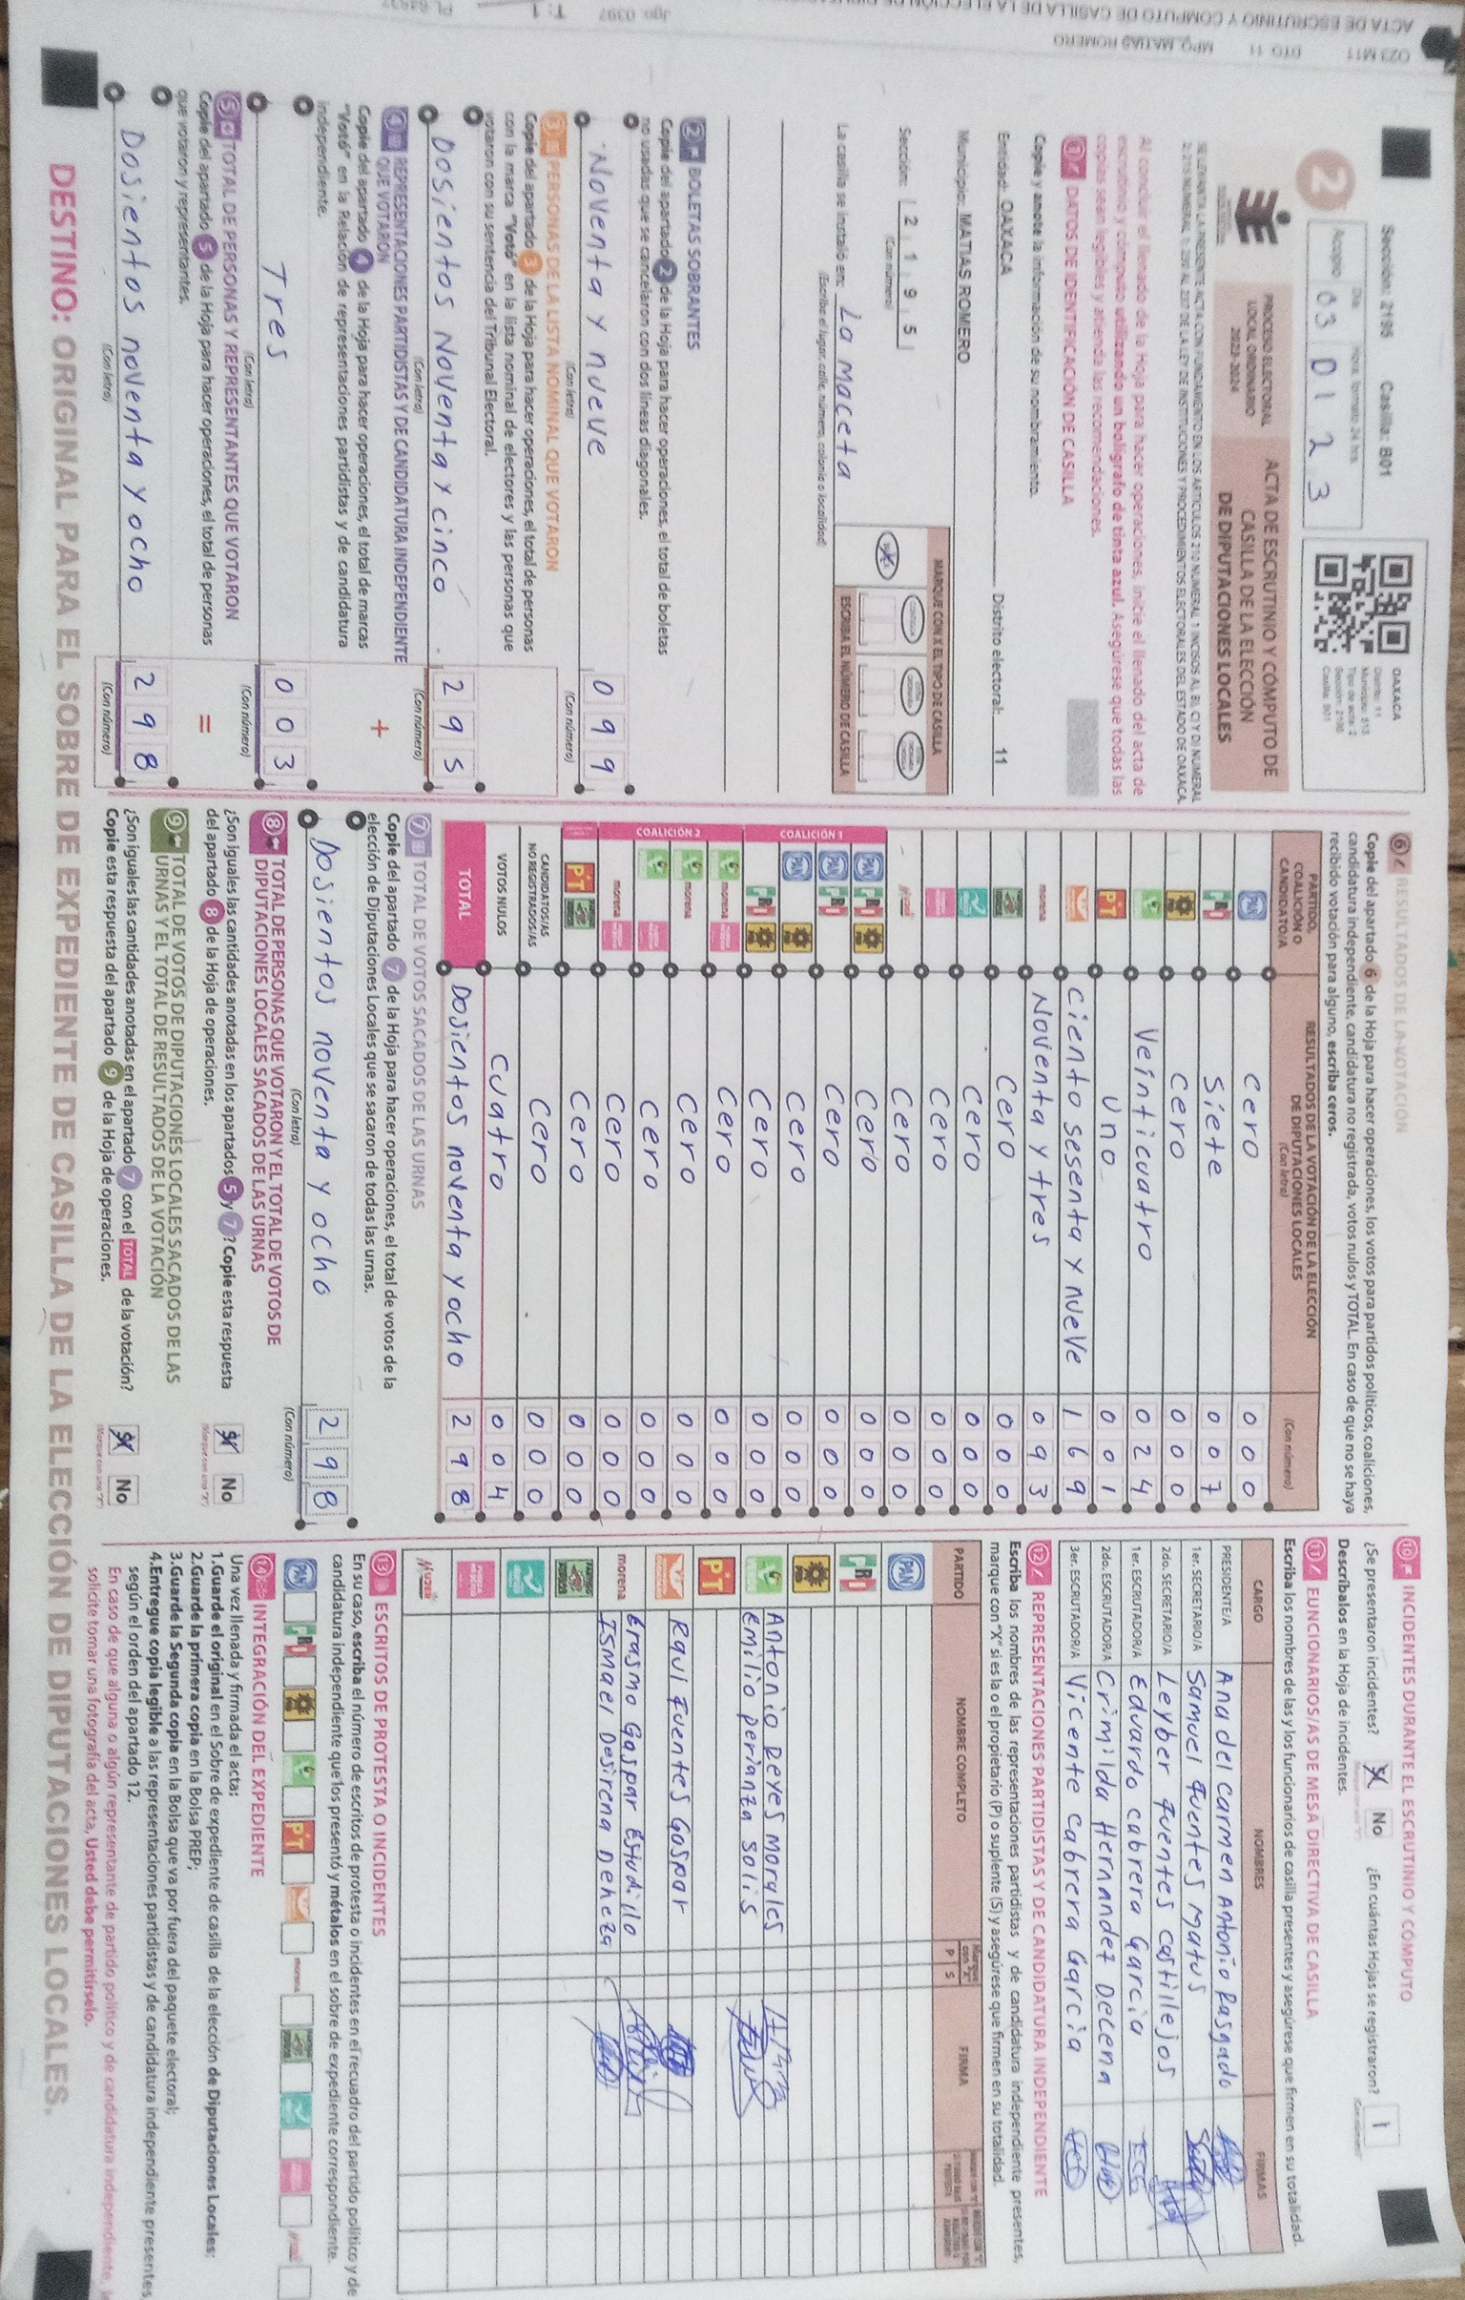 Sección: 2195 Casilla: B01
Acopio
Día
03 01 23
2
OAXACA
PROCESO ELECTORAL
LOCAL ORDINARIO
2023-2024
ACTA DE ESCRUTINIO Y CÓMPUTO DE
CASILLA DE LA ELECCIÓN
DE DIPUTACIONES LOCALES
Al concluir el llenado de la Hoja para hacer operaciones, inicie el llenado del acta de
escrutinio y cómputo utilizando un bolígrafo de tinta azul. Asegúrese que todas las
copias sean legibles y atienda las recomendaciones.
1 DATOS DE IDENTIFICACIÓN DE CASILLA
Copie y anote la información de su nombramiento.
Entidad: OAXACA Distrito electoral: 11
Municipio: MATIAS ROMERO
Sección: 2 1 9 5
(Con número)
MARQUE CON X EL TIPO DE CASILLA
ESCRIBA EL NÚMERO DE CASILLA
La casilla se instaló en: La maceta
(Escriba el lugar, calle, número, colonia o localidad)
2 BOLETAS SOBRANTES
Copie del apartado 2 de la Hoja para hacer operaciones, el total de boletas
no usadas que se cancelaron con dos líneas diagonales.
Noventa y nueve 0 9 9
(Con letra) (Con número)
3 PERSONAS DE LA LISTA NOMINAL QUE VOTARON
Copie del apartado 3 de la Hoja para hacer operaciones, el total de personas
con la marca "Votó" en la lista nominal de electores y las personas que
votaron con su sentencia del Tribunal Electoral.
Dosientos Noventa y cinco 2 9 5
(Con letra) (Con número)
4 REPRESENTACIONES PARTIDISTAS Y DE CANDIDATURA INDEPENDIENTE
QUE VOTARON
Copie del apartado 4 de la Hoja para hacer operaciones, el total de marcas
"Votó" en la Relación de representaciones partidistas y de candidatura
independiente.
+
Tres 0 0 3
(Con letra) (Con número)
5 TOTAL DE PERSONAS Y REPRESENTANTES QUE VOTARON
Copie del apartado 5 de la Hoja para hacer operaciones, el total de personas
que votaron y representantes.
=
Dosientos noventa y ocho 2 9 8
(Con letra) (Con número)
6 RESULTADOS DE LA VOTACIÓN
Copie del apartado 6 de la Hoja para hacer operaciones, los votos para partidos políticos, coaliciones,
candidatura independiente, candidatura no registrada, votos nulos y TOTAL. En caso de que no se haya
recibido votación para alguno, escriba ceros.
PARTIDO,
COALICIÓN O
CANDIDATO/A
RESULTADOS DE LA VOTACIÓN DE LA ELECCIÓN
DE DIPUTACIONES LOCALES
(Con letra) (Con número)
PAN cero 0 0 0
PRI Siete 0 0 7
PRD cero 0 0 0
Veinticuatro 0 2 4
PT Uno 0 0 1
Ciento sesenta y nueve 1 6 9
morena Noventa y tres 0 9 3
Cero 0 0 0
cero 0 0 0
cero 0 0 0
cero 0 0 0
COALICIÓN 1
PAN PRI PRD cero 0 0 0
PAN PRI cero 0 0 0
PAN PRD cero 0 0 0
PRI PRD cero 0 0 0
COALICIÓN 2
morena cero 0 0 0
morena cero 0 0 0
cero 0 0 0
morena cero 0 0 0
PT cero 0 0 0
CANDIDATOS/AS
NO REGISTRADOS/AS cero 0 0 0
VOTOS NULOS cuatro 0 0 4
TOTAL Dosientos noventa y ocho 2 9 8
7 TOTAL DE VOTOS SACADOS DE LAS URNAS
Copie del apartado 7 de la Hoja para hacer operaciones, el total de votos de la
elección de Diputaciones Locales que se sacaron de todas las urnas.
Dosientos noventa y ocho 2 9 8
(Con letra) (Con número)
8 TOTAL DE PERSONAS QUE VOTARON Y EL TOTAL DE VOTOS DE
DIPUTACIONES LOCALES SACADOS DE LAS URNAS
¿Son iguales las cantidades anotadas en los apartados 5 y 7? Copie esta respuesta
del apartado 8 de la Hoja de operaciones.
Sí No
9 TOTAL DE VOTOS DE DIPUTACIONES LOCALES SACADOS DE LAS
URNAS Y EL TOTAL DE RESULTADOS DE LA VOTACIÓN
¿Son iguales las cantidades anotadas en el apartado 7 con el TOTAL de la votación?
Copie esta respuesta del apartado 9 de la Hoja de operaciones.
Sí No
10 INCIDENTES DURANTE EL ESCRUTINIO Y CÓMPUTO
¿Se presentaron incidentes? Sí No ¿En cuántas Hojas se registraron? 1
Descríbalos en la Hoja de incidentes.
11 FUNCIONARIOS/AS DE MESA DIRECTIVA DE CASILLA
Escriba los nombres de las y los funcionarios de casilla presentes y asegúrese que firmen en su totalidad.
CARGO NOMBRES FIRMAS
PRESIDENTE/A Ana del carmen Antonio Rasgado
1er. SECRETARIO/A Samuel fuentes matus
2do. SECRETARIO/A Leyber fuentes castillejos
1er. ESCRUTADOR/A Eduardo cabrera Garcia
2do. ESCRUTADOR/A Crimilda Hernandez Decena
3er. ESCRUTADOR/A Vicente cabrera Garcia
12 REPRESENTACIONES PARTIDISTAS Y DE CANDIDATURA INDEPENDIENTE
Escriba los nombres de las representaciones partidistas y de candidatura independiente presentes,
marque con "X" si es la o el propietario (P) o suplente (S) y asegúrese que firmen en su totalidad.
PARTIDO NOMBRE COMPLETO P S FIRMA
PAN
PRI
PRD
Antonio Reyes Morales
emilio perianza solis
PT
Raul Fuentes Gaspar
morena
Erasmo Gaspar Estudillo
Ismael Desirena Deheza
13 ESCRITOS DE PROTESTA O INCIDENTES
En su caso, escriba el número de escritos de protesta o incidentes en el recuadro del partido político y de
candidatura independiente que los presentó y métalos en el sobre de expediente correspondiente.
PAN PRI PRD PT morena
14 INTEGRACIÓN DEL EXPEDIENTE
Una vez llenada y firmada el acta:
1.Guarde el original en el Sobre de expediente de casilla de la elección de Diputaciones Locales;
2.Guarde la primera copia en la Bolsa PREP;
3.Guarde la Segunda copia en la Bolsa que va por fuera del paquete electoral;
4.Entregue copia legible a las representaciones partidistas y de candidatura independiente presentes
según el orden del apartado 12.
En caso de que alguna o algún representante de partido político y de candidatura independiente
solicite tomar una fotografía del acta, Usted debe permitírselo.
DESTINO: ORIGINAL PARA EL SOBRE DE EXPEDIENTE DE CASILLA DE LA ELECCIÓN DE DIPUTACIONES LOCALES.